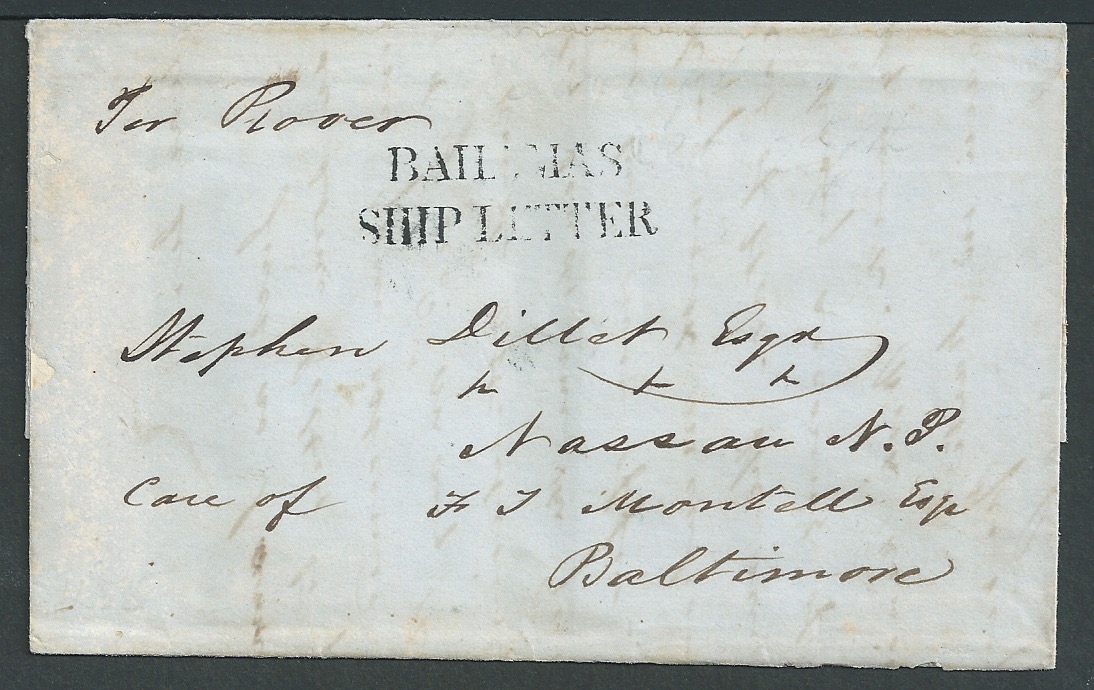 Per Rover
BAHAMAS
SHIP LETTER
Stephen Dillet Esqr
Nassau N.P.
Care of F T Montell Esq
Baltimore